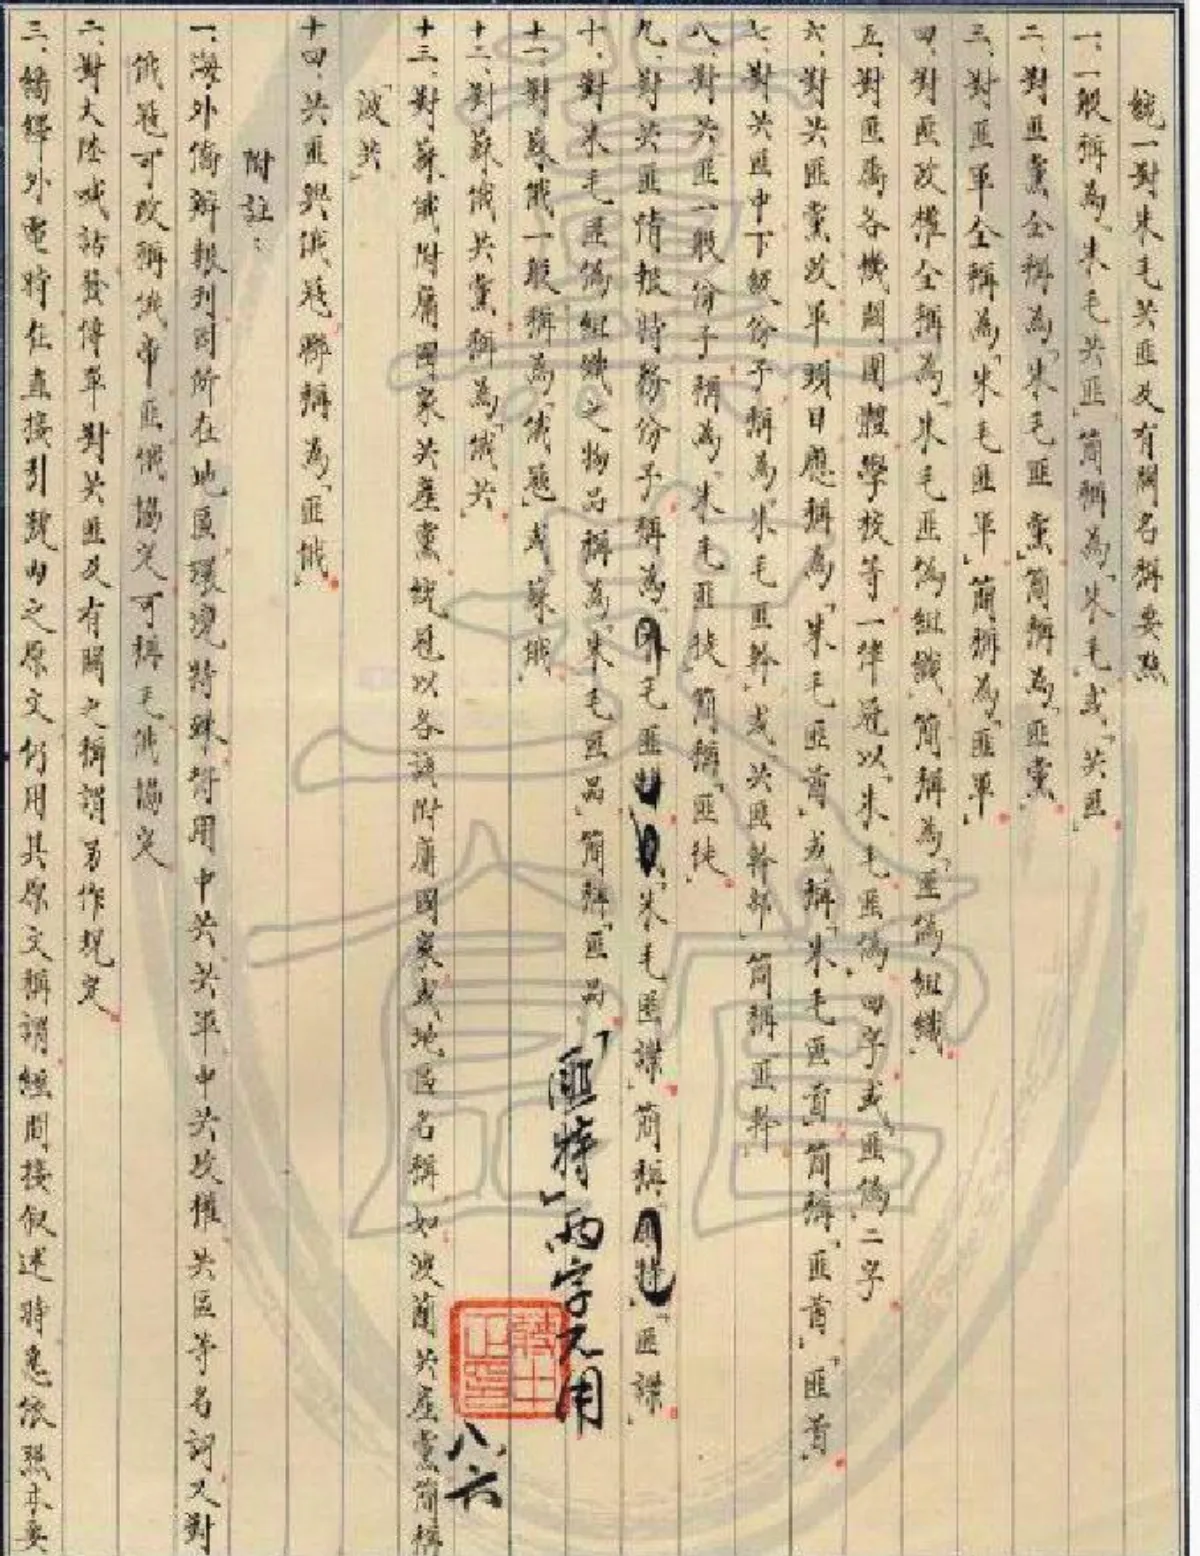 統一對朱毛共匪及有關名稱要點
一、一般稱為「朱毛共匪」簡稱為「朱毛」或「共匪」
二、對匪黨全稱為「朱毛匪黨」簡稱為「匪黨」
三、對匪軍全稱為「朱毛匪軍」簡稱為「匪軍」
四、對匪政權全稱為「朱毛匪偽組織」簡稱為「匪偽組織」
五、對匪屬各機關團體學校等一律冠以「朱毛匪偽」四字或「匪偽」二字
六、對共匪黨政軍頭目應稱為「朱毛匪酋」或稱「朱毛匪首」簡稱「匪酋」「匪首」
七、對共匪中下級份子稱為「朱毛匪幹」或「共匪幹部」簡稱「匪幹」
八、對共匪一般份子稱為「朱毛匪徒」簡稱「匪徒」
九、對共匪情報特務份子稱為 毛匪 「朱毛匪諜」簡稱 「匪諜」
十、對朱毛匪偽組織之物品稱為「朱毛匪品」簡稱「匪品」
「匪特」兩字不用
十一、對蘇俄一般稱為「俄寇」或「蘇俄」
十二、對蘇俄共黨稱為「俄共」
八、六
十三、對蘇俄附庸國家共產黨統冠以各該附庸國家或地區名稱如波蘭共產黨簡稱
「波共」
十四、共匪與俄寇聯稱為「匪俄」
附註：
一、海外僑辦報刊因所在地區環境特殊得用中共共軍中共政權共區等名詞又對
俄寇可改稱俄帝匪俄協定可稱毛俄協定
二、對大陸喊話發傳單對共匪及有關之稱謂另作規定
三、繙譯外電時在直接引號內之原文仍用其原文稱謂經間接敘述時急依照本要